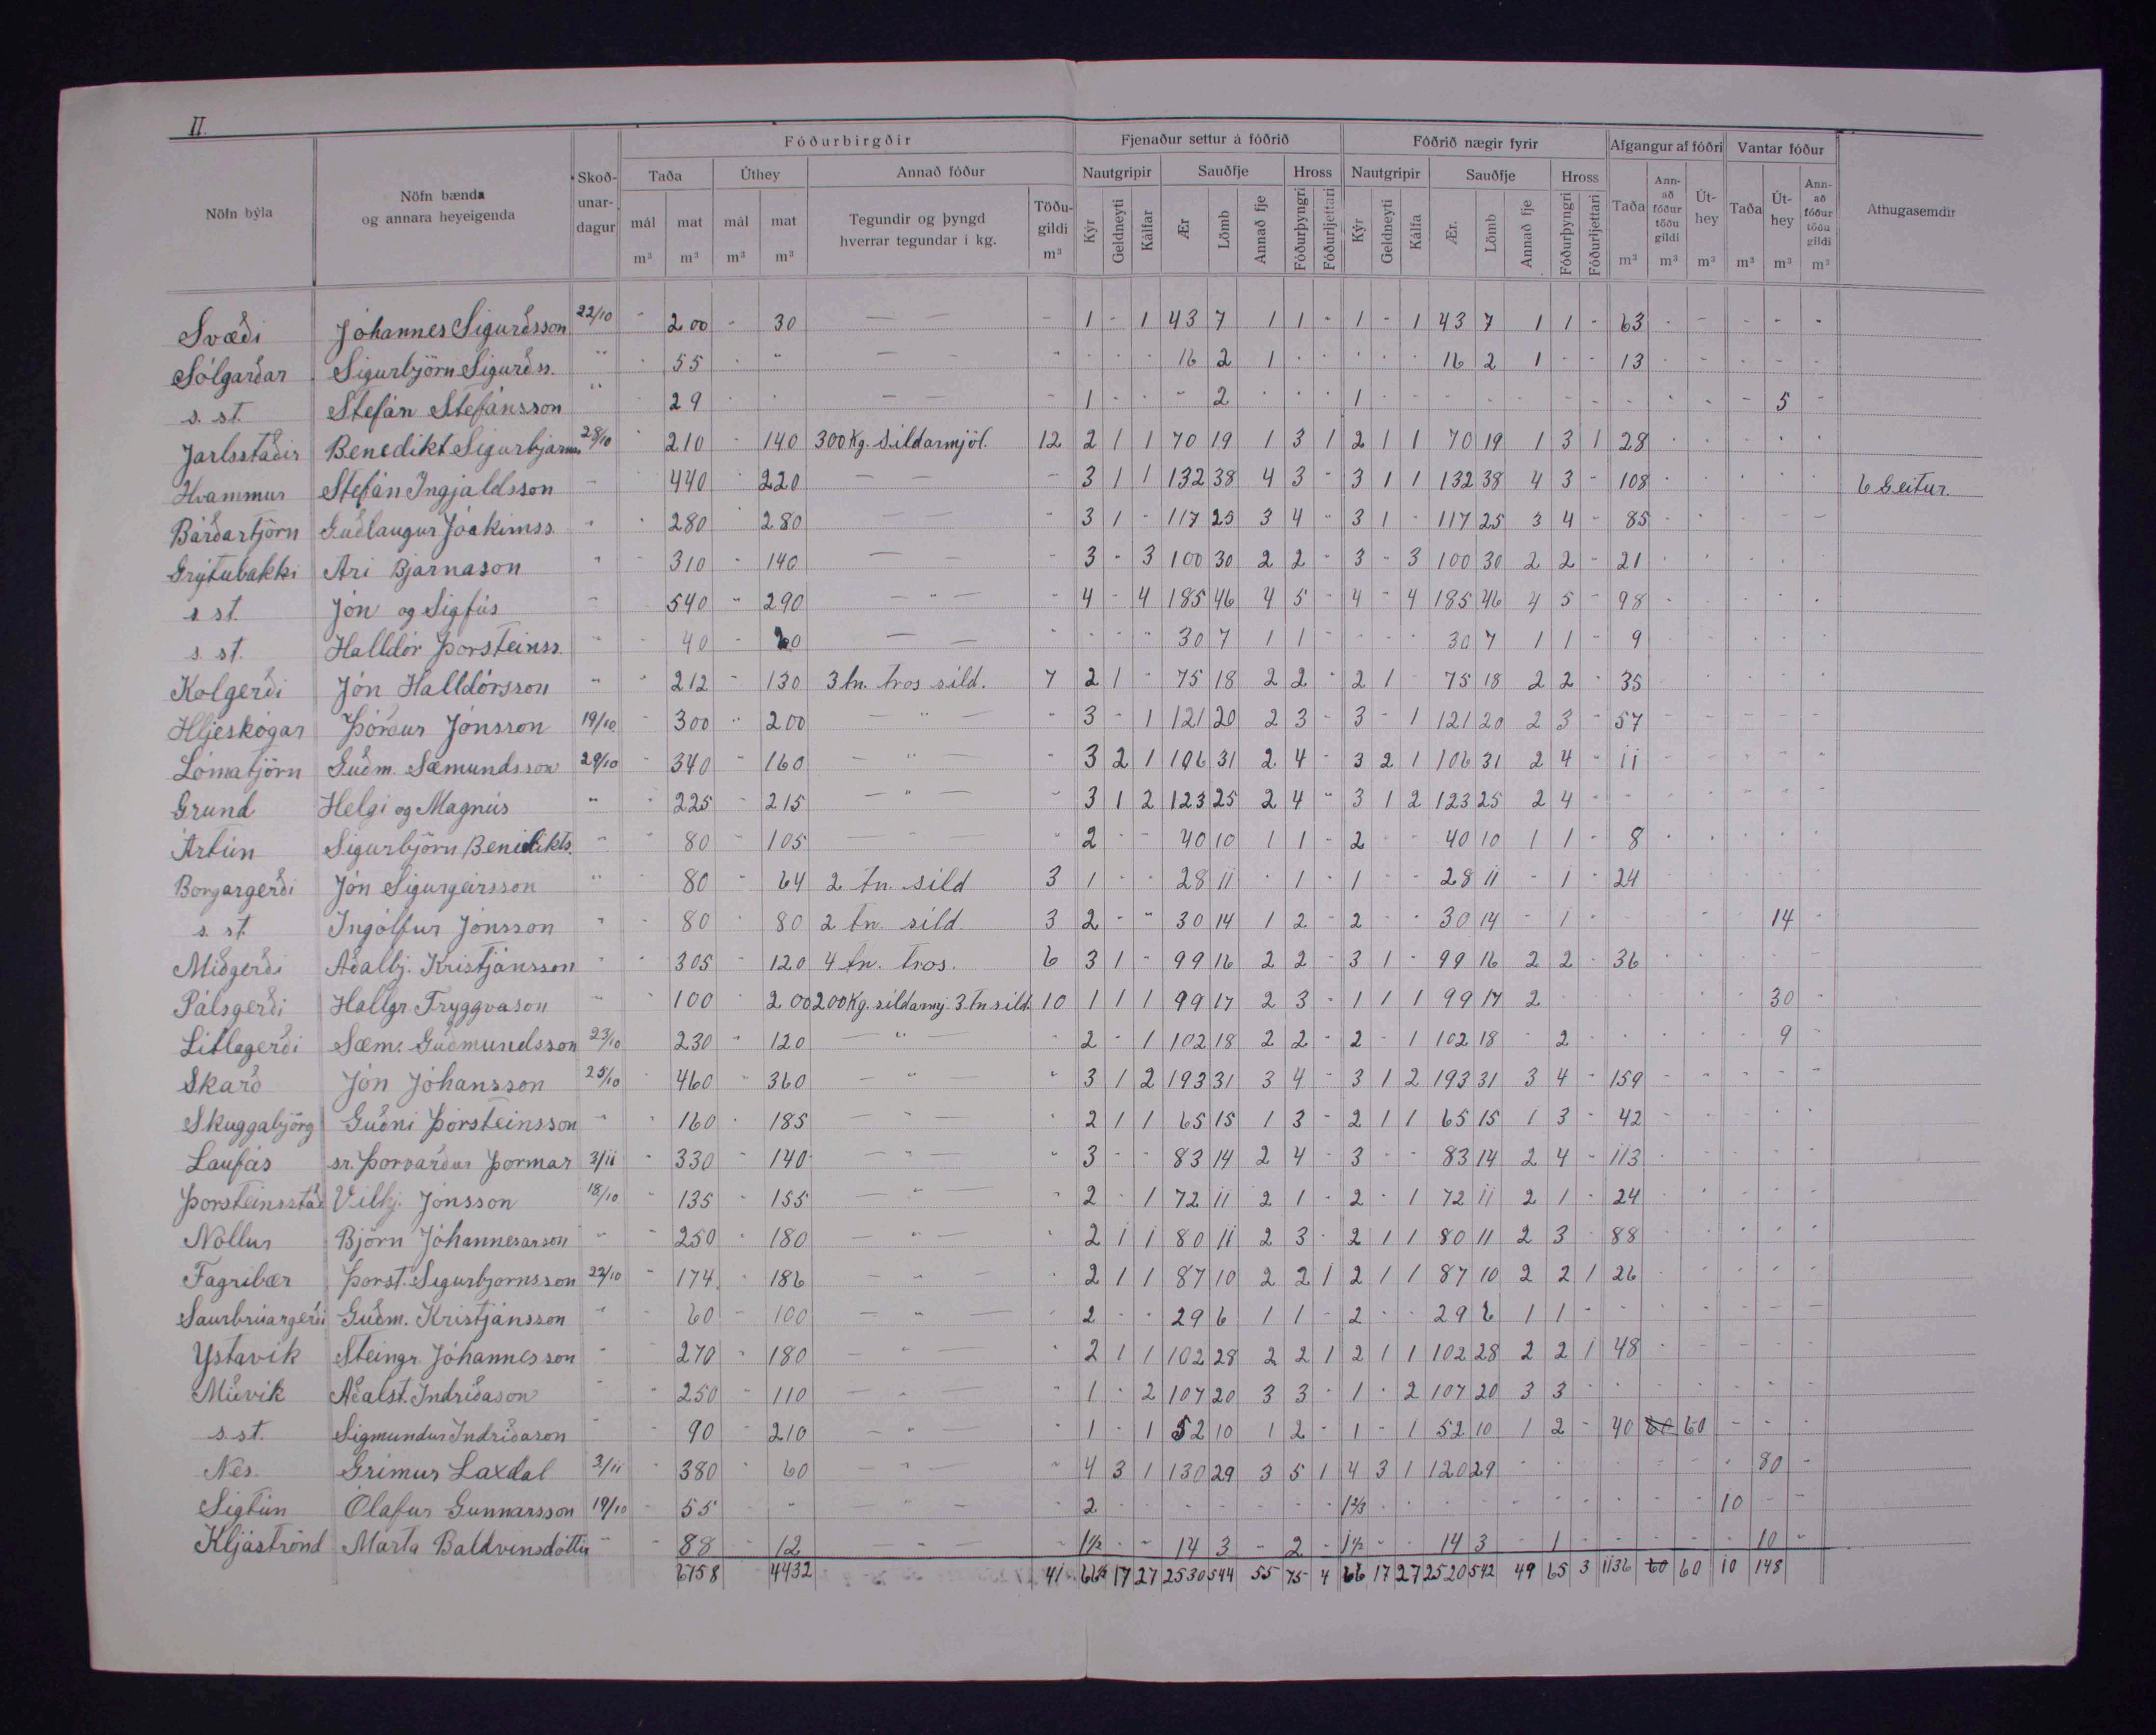 II.
Fóðurbirgðir Fjenaður settur á fóðrið Fóðrið nægir fyrir Afgangur af fóðri Vantar fóður
Nöfn býla Nöfn bænda og annara heyeigenda Skoð-unar-dagur Taða Úthey Annað fóður Nautgripir Sauðfje Hross Nautgripir Sauðfje Hross Taða Ann-að fóður töðu gildi Út-hey Taða Út-hey Ann-að fóður töðu gildi Athugasemdir
mál mat mál mat Tegundir og þyngd hverrar tegundar í kg. Töðu-gildi Kýr Geldneyti Kálfar Ær Lömb Annað fje Fóðurþyngri Fóðurljettari Kýr Geldneyti Kálfa Ær. Lömb Annað fje Fóðurþyngri Fóðurljettari
m³ m³ m³ m³ m³ m³ m³ m³ m³ m³ m³
Svæði Jóhannes Sigurðsson 22/10 - 200 - 30 — — - 1 - 1 43 7 1 1 - 1 - 1 43 7 1 1 - 63 - - - - -
Sólgarðar Sigurbjörn Sigurðss. " - 55 - " — — " - - - 16 2 1 - - - - - 16 2 1 - - 13 - - - - -
s. st. Stefán Stefánsson " - 29 - - — — - 1 - - - 2 - - - 1 - - - - - - - - - - - 5 -
Jarlsstaðir Benedikt Sigurbjarnas. 28/10 " 210 - 140 300 Kg. síldarmjöl. 12 2 1 1 70 19 1 3 1 2 1 1 70 19 1 3 1 28 - - - - -
Hvammur Stefán Ingjaldsson - 440 220 — — - 3 1 1 132 38 4 3 - 3 1 1 132 38 4 3 - 108 - - - - - 6 Geitur.
Bárðartjörn Guðlaugur Jóakimss. " - 280 280 — — " 3 1 - 117 25 3 4 " 3 1 - 117 25 3 4 - 85 - - - - -
Grýtubakki Ari Bjarnason " 310 - 140 — — " 3 - 3 100 30 2 2 - 3 - 3 100 30 2 2 - 21 - - - - -
s. st. Jón og Sigfús - 540 " 290 — " — " 4 - 4 185 46 4 5 - 4 - 4 185 46 4 5 - 98 - - - - -
s. st. Halldór Þorsteinss. " - 40 - 20 — — " - - " 30 7 1 1 - - - - 30 7 1 1 - 9 - - - - -
Kolgerði Jón Halldórsson " " 212 - 130 3 tn. tros síld. 7 2 1 - 75 18 2 2 - 2 1 - 75 18 2 2 - 35 - - - - -
Hljeskógar Þórður Jónsson 19/10 - 300 " 200 — " — " 3 - 1 121 20 2 3 - 3 - 1 121 20 2 3 - 57 - - - - -
Lómatjörn Guðm. Sæmundsson 29/10 - 340 - 160 — " — " 3 2 1 106 31 2 4 - 3 2 1 106 31 2 4 " 11 - - - - -
Grund Helgi og Magnús " " 225 - 215 — " — " 3 1 2 123 25 2 4 " 3 1 2 123 25 2 4 - - - - - - -
Ártún Sigurbjörn Benidikts. - " 80 - 105 — — " 2 - - 40 10 1 1 - 2 - - 40 10 1 1 - 8 - - - - -
Borgargerði Jón Sigurgeirsson " - 80 " 64 2 tn. síld 3 1 - - 28 11 - 1 - 1 - - 28 11 - 1 - 24
s. st. Ingólfur Jónsson " - 80 - 80 2 tn. síld. 3 2 - " 30 14 1 2 - 2 - - 30 14 - 1 - - - 14 -
Miðgerði Aðalbj. Kristjánsson " " 305 - 120 4 tn. tros. 6 3 1 - 99 16 2 2 - 3 1 - 99 16 2 2 - 36 - - - - -
Pálsgerði Hallgr Tryggvason " 100 - 200 200 Kg. síldarmj. 3. tn síld. 10 1 1 1 99 17 2 3 - 1 1 1 99 17 2 - - - - 30 -
Litlagerði Sæm. Guðmundsson 23/10 230 " 120 — " — - 2 - 1 102 18 2 2 - 2 - 1 102 18 - 2 - - - - 9 -
Skarð Jón Jóhansson 25/10 460 - 360 — " — " 3 1 2 193 31 3 4 - 3 1 2 193 31 3 4 - 159 - - - - -
Skuggabjörg Guðni Þorsteinsson " " 160 - 185 — " — " 2 1 1 65 15 1 3 - 2 1 1 65 15 1 3 - 42 - - - - -
Laufás sr. Þorvarður Þormar 3/11 " 330 - 140 — " — " 3 - - 83 14 2 4 - 3 - - 83 14 2 4 - 113 - - - - -
Þorsteinsstað Vilhj. Jónsson 18/10 " 135 - 155 — " — " 2 - 1 72 11 2 1 - 2 - 1 72 11 2 1 - 24 - - - - -
Nollur Björn Jóhannesarson " " 250 " 180 — " — " 2 1 1 80 11 2 3 - 2 1 1 80 11 2 3 - 88 - - - - -
Fagribær Þorst. Sigurbjornsson 22/10 " 174 - 186 — " — - 2 1 1 87 10 2 2 1 2 1 1 87 10 2 2 1 26 - - - - -
Saurbrúargerði Guðm. Kristjánsson " - 60 - 100 — " — " 2 - - 29 6 1 1 - 2 - - 29 6 1 1 - - - - - - -
Ystavík Steingr. Jóhannesson - - 270 " 180 — " — " 2 1 1 102 28 2 2 1 2 1 1 102 28 2 2 1 48 - - - - -
Miðvík Aðalst. Indriðason " - 250 - 110 — " — " 1 - 2 107 20 3 3 - 1 - 2 107 20 3 3 - - - - - - -
s. st. Sigmundur Indriðason - 90 - 210 — " — " 1 - 1 52 10 1 2 - 1 - 1 52 10 1 2 - 40 60 60 - - -
Nes. Grímur Laxdal 3/11 " 380 " 60 — " — " 4 3 1 130 29 3 5 1 4 3 1 120 29 - - - - - - - 80 -
Sigtún Ólafur Gunnarsson 19/10 - 55 - - — " — " 2 - - - - - - - 1 2/3 - - - - - - - - - - 10 - -
Kljáströnd Marta Baldvinsdóttir " - 88 - 12 — " — - 1 1/2 - - 14 3 - 2 - 1 1/2 - - 14 3 - 1 - - - - - 10 -
6758 4432 41 66½ 17 27 2530 544 55 75 4 66 17 27 2520 542 49 65 3 1136 60 60 10 148